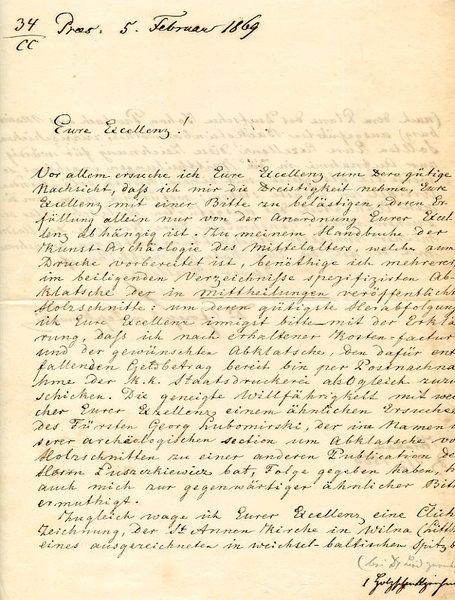 34
CC
Praes. 5. Februar 1869
Eure Excellenz!
Vor allem ersuche ich Eure Excellenz um Dero gütige
Nachsicht, daß ich mir die Dreistigkeit nehme, Eure
Excellenz mit einer Bitte zu belästigen, deren Er-
füllung allein nur von der Anordnung Eurer Excel-
lenz abhängig ist. Zu meinem Handbuche der
Kunst-Archäologie des Mittelalters, welches zum
Drucke vorbereitet ist, benöthige ich mehrerer,
im beiligenden Verzeichnisse spezifizirten Ab-
klatsche der in Mittheilungen veröffentlicht
Holzschnitte: um deren gütigste Herabfolgung
ich Eure Excellenz innigst bitte mit der Erklä-
rung, daß ich nach erhaltener Kosten-factur
und der gewünschten Abklatsche, den dafür ent-
fallenden Geldbetrag bereit bin per Postnachna-
hme der k.k. Staatsdruckerei alsogleich zuzu-
schicken. Die geneigte Willfährigkeit mit wel-
cher Eurer Excellenz einem ähnlichen Ersuchen
des Fürsten Georg Lubomirski, der im Namen un-
serer archäologischen section um Abklatsche vo
Holzschnitten zu einer anderen Publication de
Herrn Łuszczkiewicz bat, Folge gegeben haben, h
auch mich zur gegenwärtiger ähnlicher Bitte
ermuthigt.
Zugleich wage ich Eurer Excellenz eine Clich
Zeichnung, der St Annen Kirche in Wilna (Litth
eines ausgezeichneten in weichsel-baltischen Spitzb